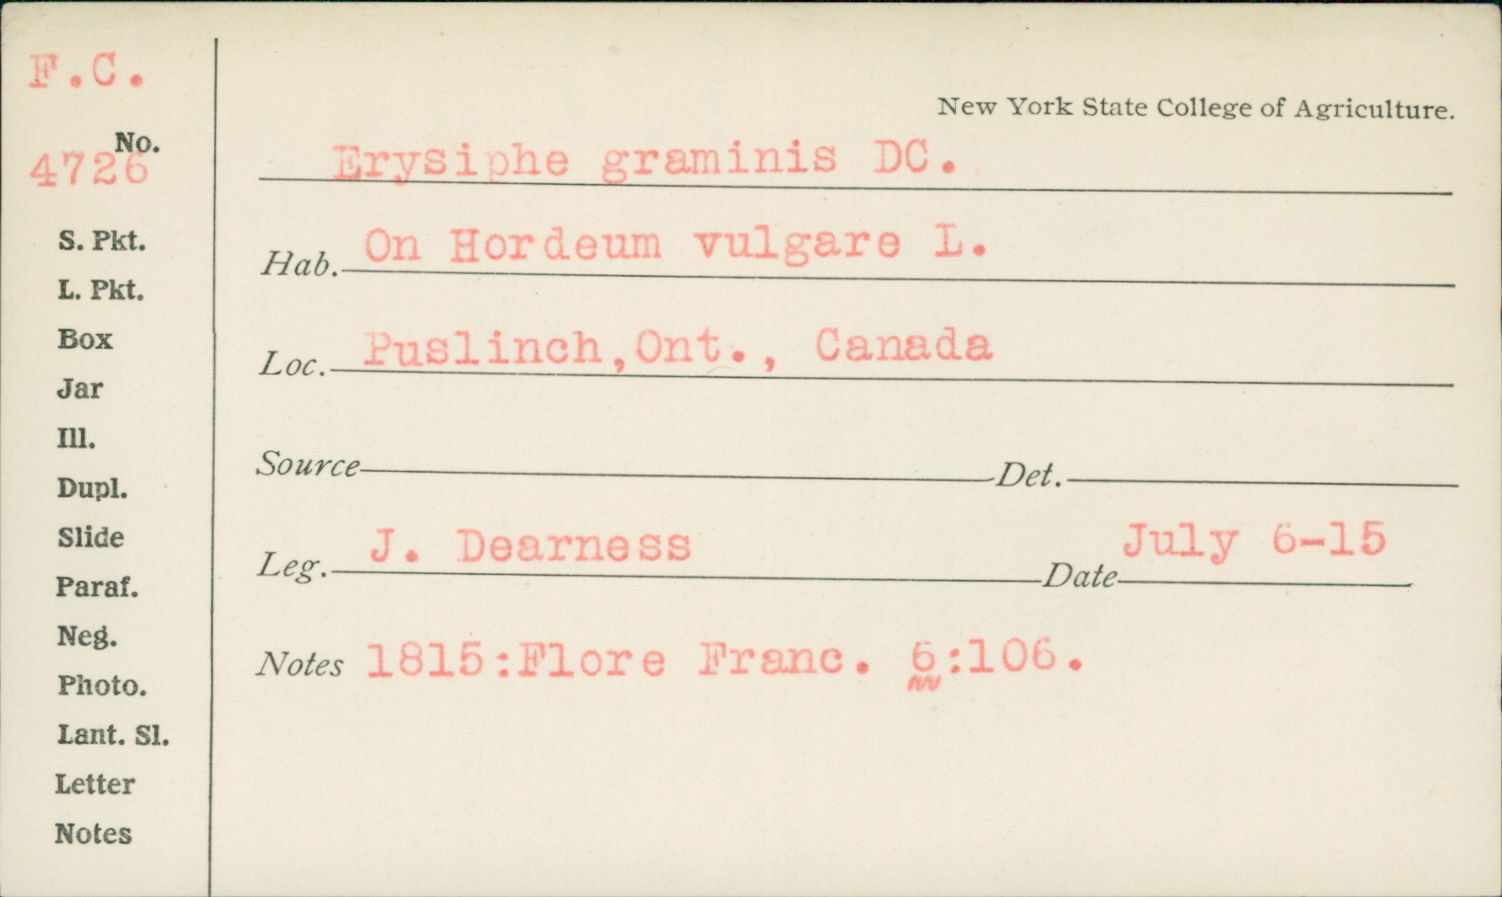 F.C.
No.
4726
S. Pkt.
L. Pkt.
Box
Jar
Ill.
Dupl.
Slide
Paraf.
Neg.
Photo.
Lant. Sl.
Letter
Notes
New York State College of Agriculture.
Erysiphe graminis DC.
Hab. On Hordeum vulgare L.
Loc. Puslinch,Ont., Canada
Source Det.
Leg. J. Dearness Date July 6-15
Notes 1815:Flore Franc. 6:106.